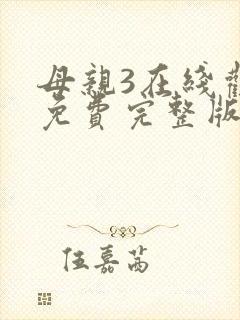 母親3在綫觀
免費完整版
伍嘉茜